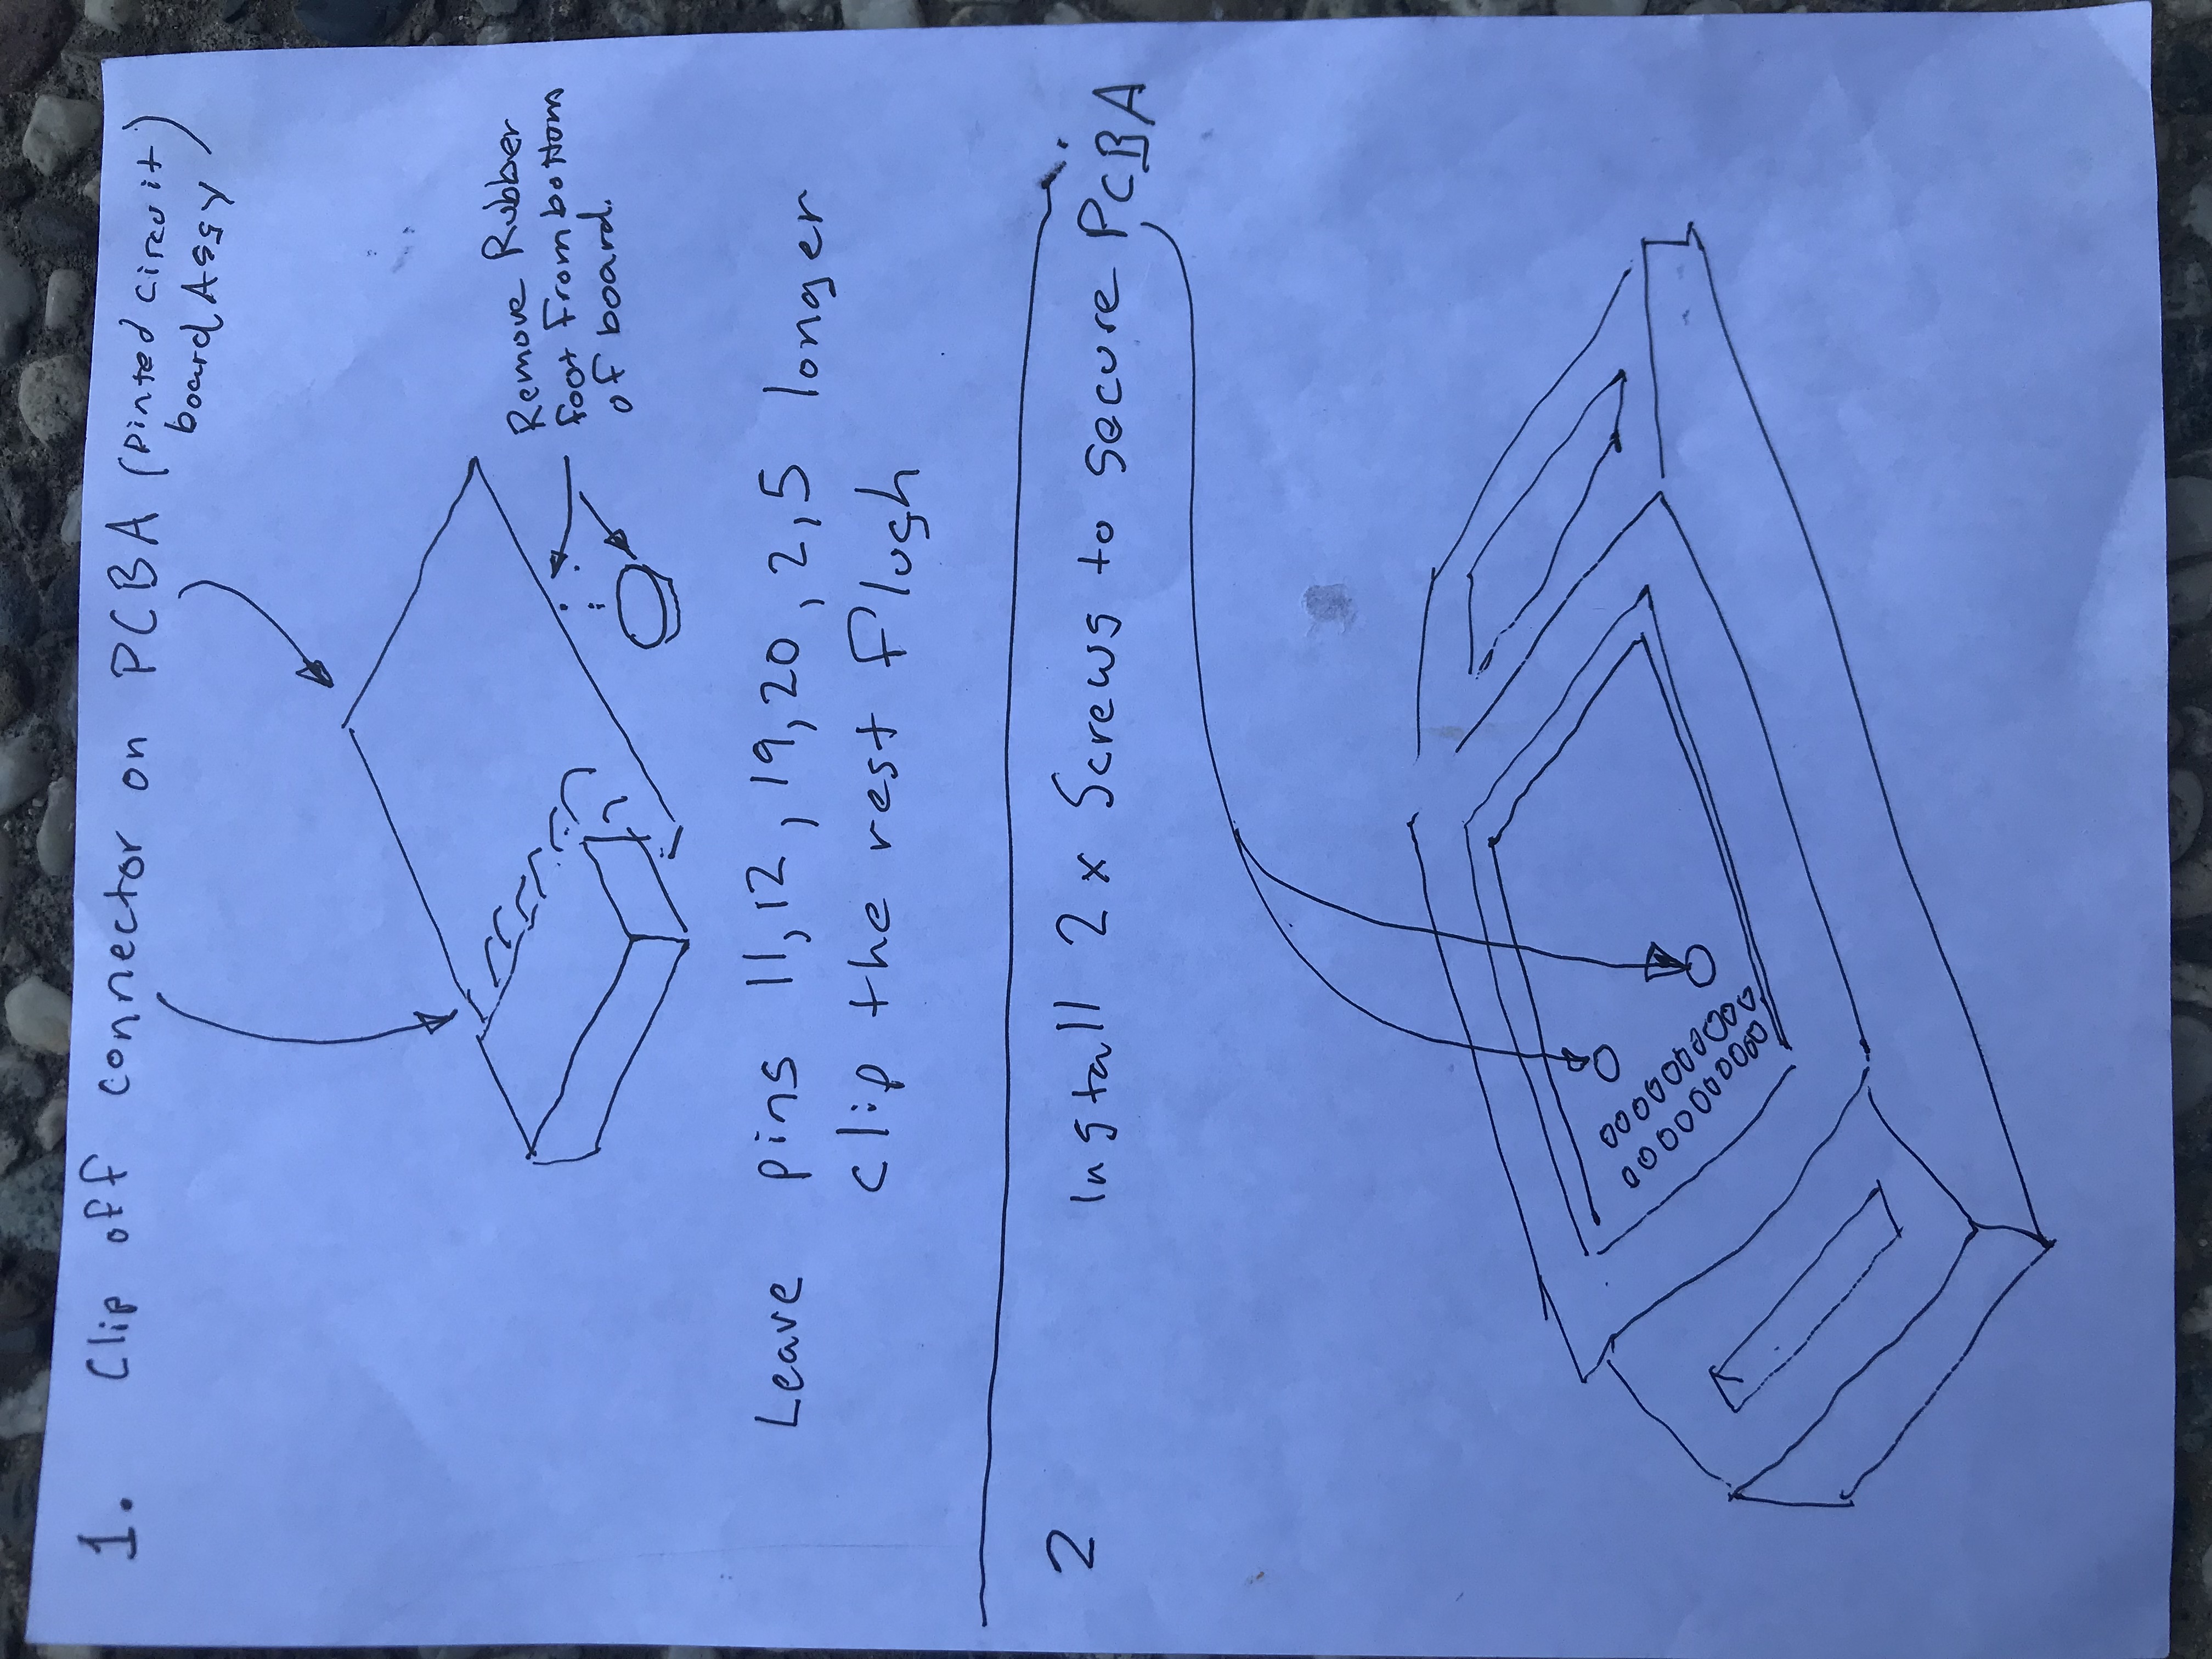 1. Clip off connector on PCBA (pinted circuit
board Assy)
Remove Rubber
foot from bottom
of board.
Leave pins 11, 12, 19, 20, 2, 5 longer
clip the rest flush
2 Install 2x Screws to secure PCBA